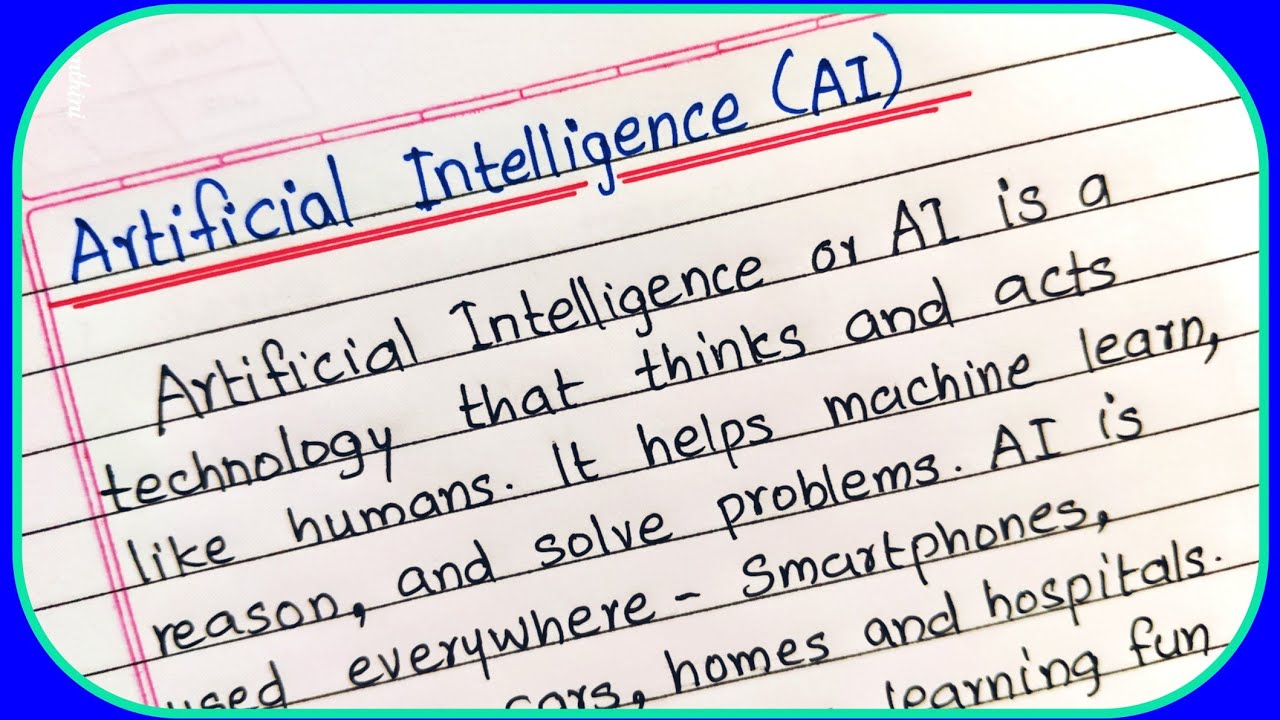 Artificial Intelligence (AI)
Artificial Intelligence or AI is a
technology that thinks and acts
like humans. It helps machine learn,
reason, and solve problems. AI is
used everywhere - Smartphones,
cars, homes and hospitals.
learning fun